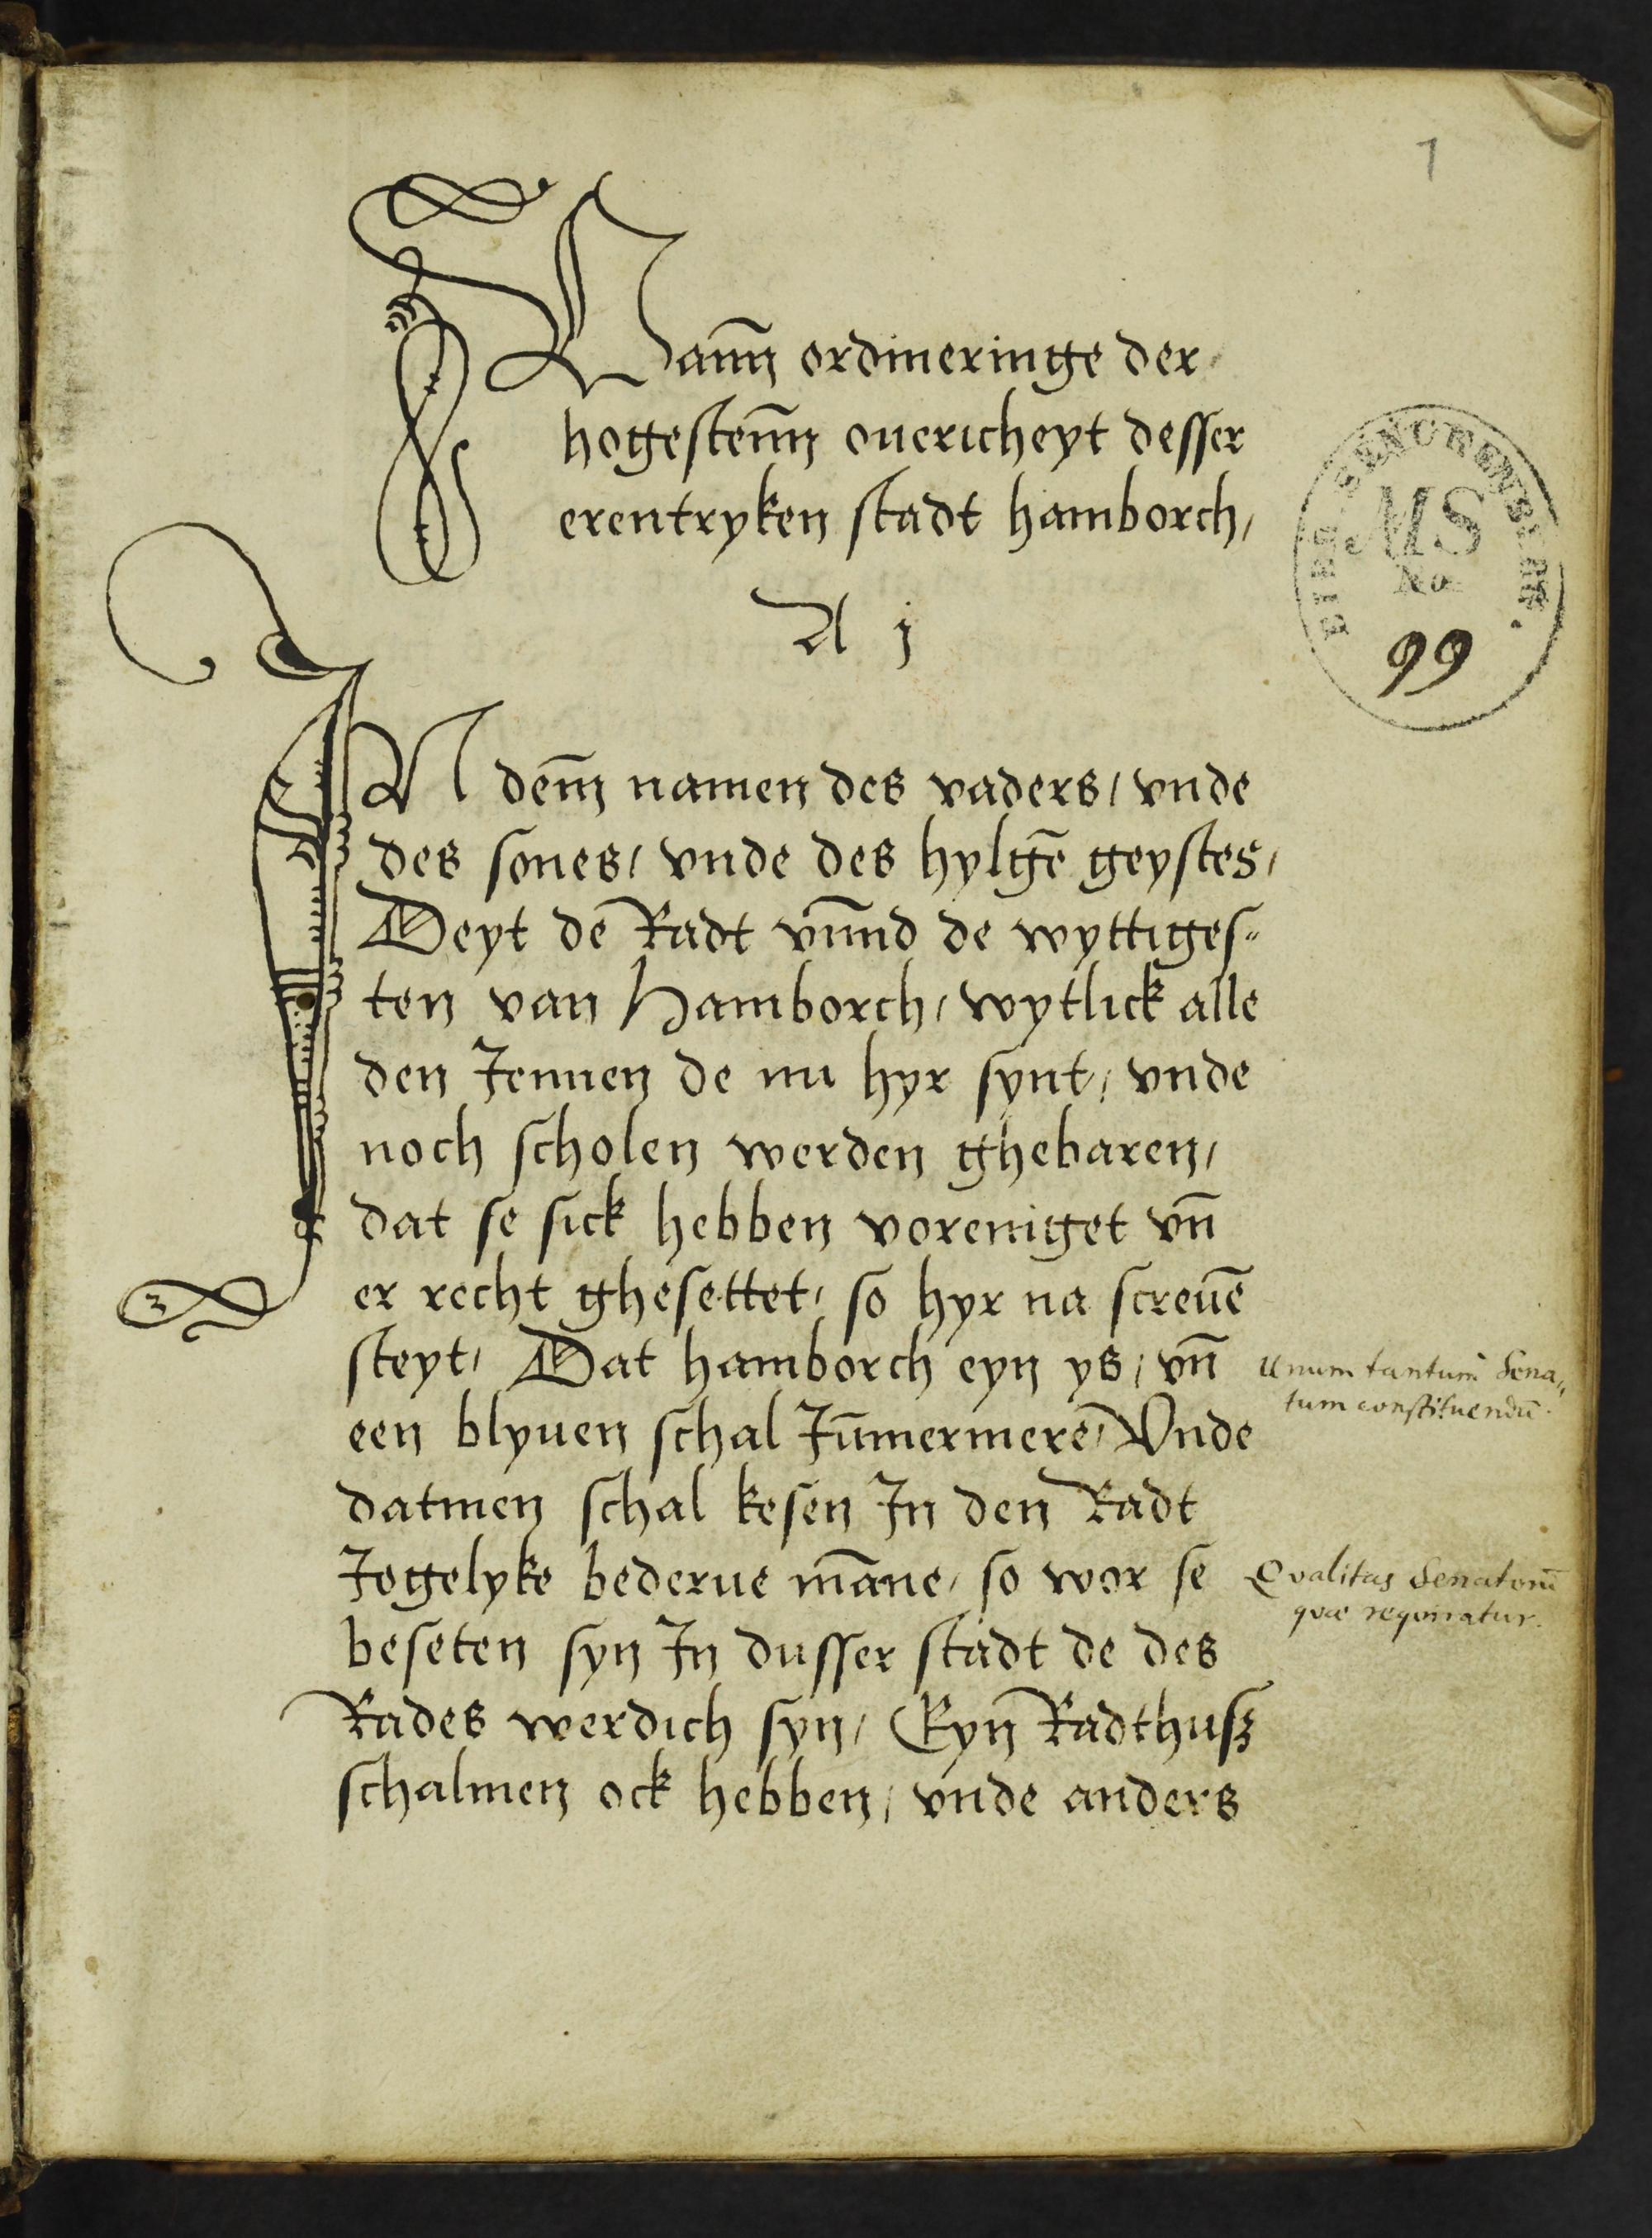 1
Vann ordineringe der
hogestenn ouericheyt desser
erentryken stadt hamborch/
A j
BIBL. SENCKENBERG.
MS
No.
99
IN dem̄ namen des vaders/ vnde
des sones/ vnde des hylgē geystes/
Deyt de Radt vn̄nd de wyttiges„
ten van Hamborch/ wytlick alle
den Jennen de nu hyr synt/ vnde
noch scholen werden ghebaren/
dat se sick hebben voreniget vn̄
er recht ghesettet/ so hyr na screuē
steyt/ Dat hamborch eyn ys/ vn̄
een blyuen schal Jūmermere/ Vnde
datmen schal kesen Jn den Radt
Jegelyke bederue māne/ so wor se
beseten syn Jn dusser stadt de des
Rades werdich syn/ Eyn Radthusz
schalmen ock hebben/ vnde anders
Unum tantum Sena„
tum constituendū.
Qvalitas Senatorū
qvæ reqviratur.